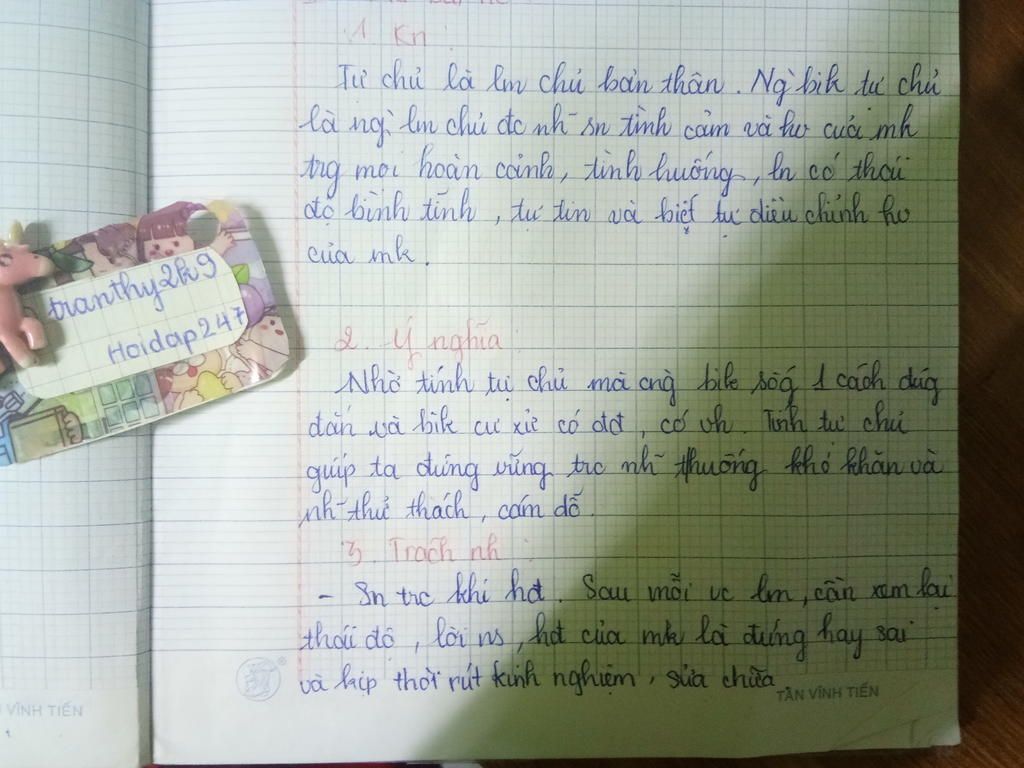 1. Kn :
Tự chủ là lm chủ bản thân. Ng` bik tự chủ
là ng` lm chủ đc nh~ sn tình cảm và hv của mk
trg mọi hoàn cảnh, tình huống, ln có thái
độ bình tĩnh, tự tin và biết tự điều chỉnh hv
của mk.
tranthy2k9
Hoidap247
2. Ý nghĩa :
Nhờ tính tự chủ mà cng` bik sốg 1 cách đúg
đắn và bik cư xử có đđ, có vh. Tính tự chủ
giúp ta đứng vững trc nh~ thường khó khăn và
nh~ thử thách, cám dỗ.
3. Trách nh :
- Sn trc khi hđ. Sau mỗi vc lm, cần xem lại
thái độ, lời ns, hđ của mk là đúng hay sai
và kịp thời rút kinh nghiệm, sửa chữa.
TÂN VĨNH TIẾN
VĨNH TIẾN